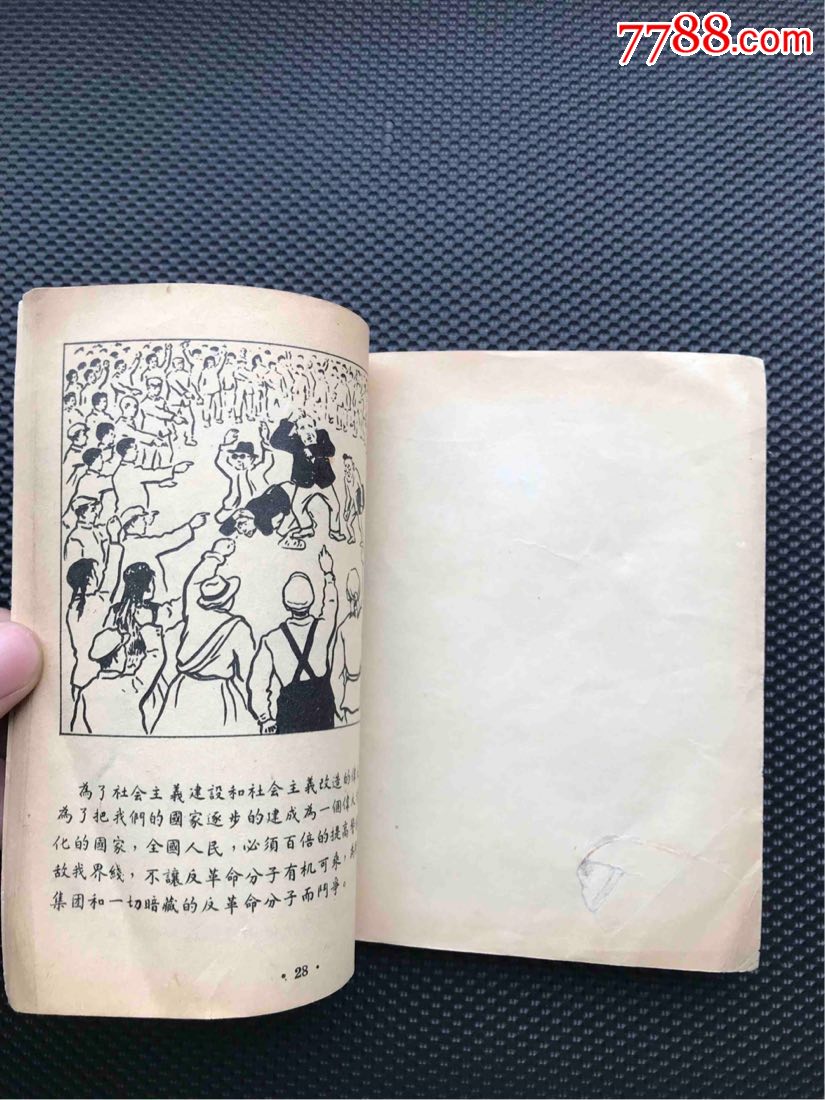 7788.com
為了社会主義建設和社会主義改造的偉
為了把我們的國家逐步的建成為一個偉大
化的國家，全國人民，必須百倍的提高警
敌我界綫，不讓反革命分子有机可乘，
集团和一切暗藏的反革命分子而鬥爭。
·28·